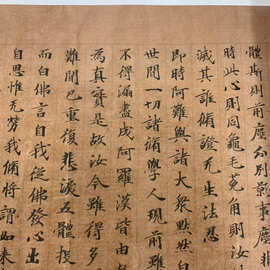 體斯則前塵分別影事
時此心則同龜毛兔角則汝
滅其誰脩證无生法忍
即時阿難與諸大衆默然自
世間一切諸脩學人現前雖
不得漏盡成阿羅漢皆由
為真實是故汝今雖得多
難聞已重復悲淚五體投
而白佛言自我從佛發心出
自思惟无勞我脩將謂如来